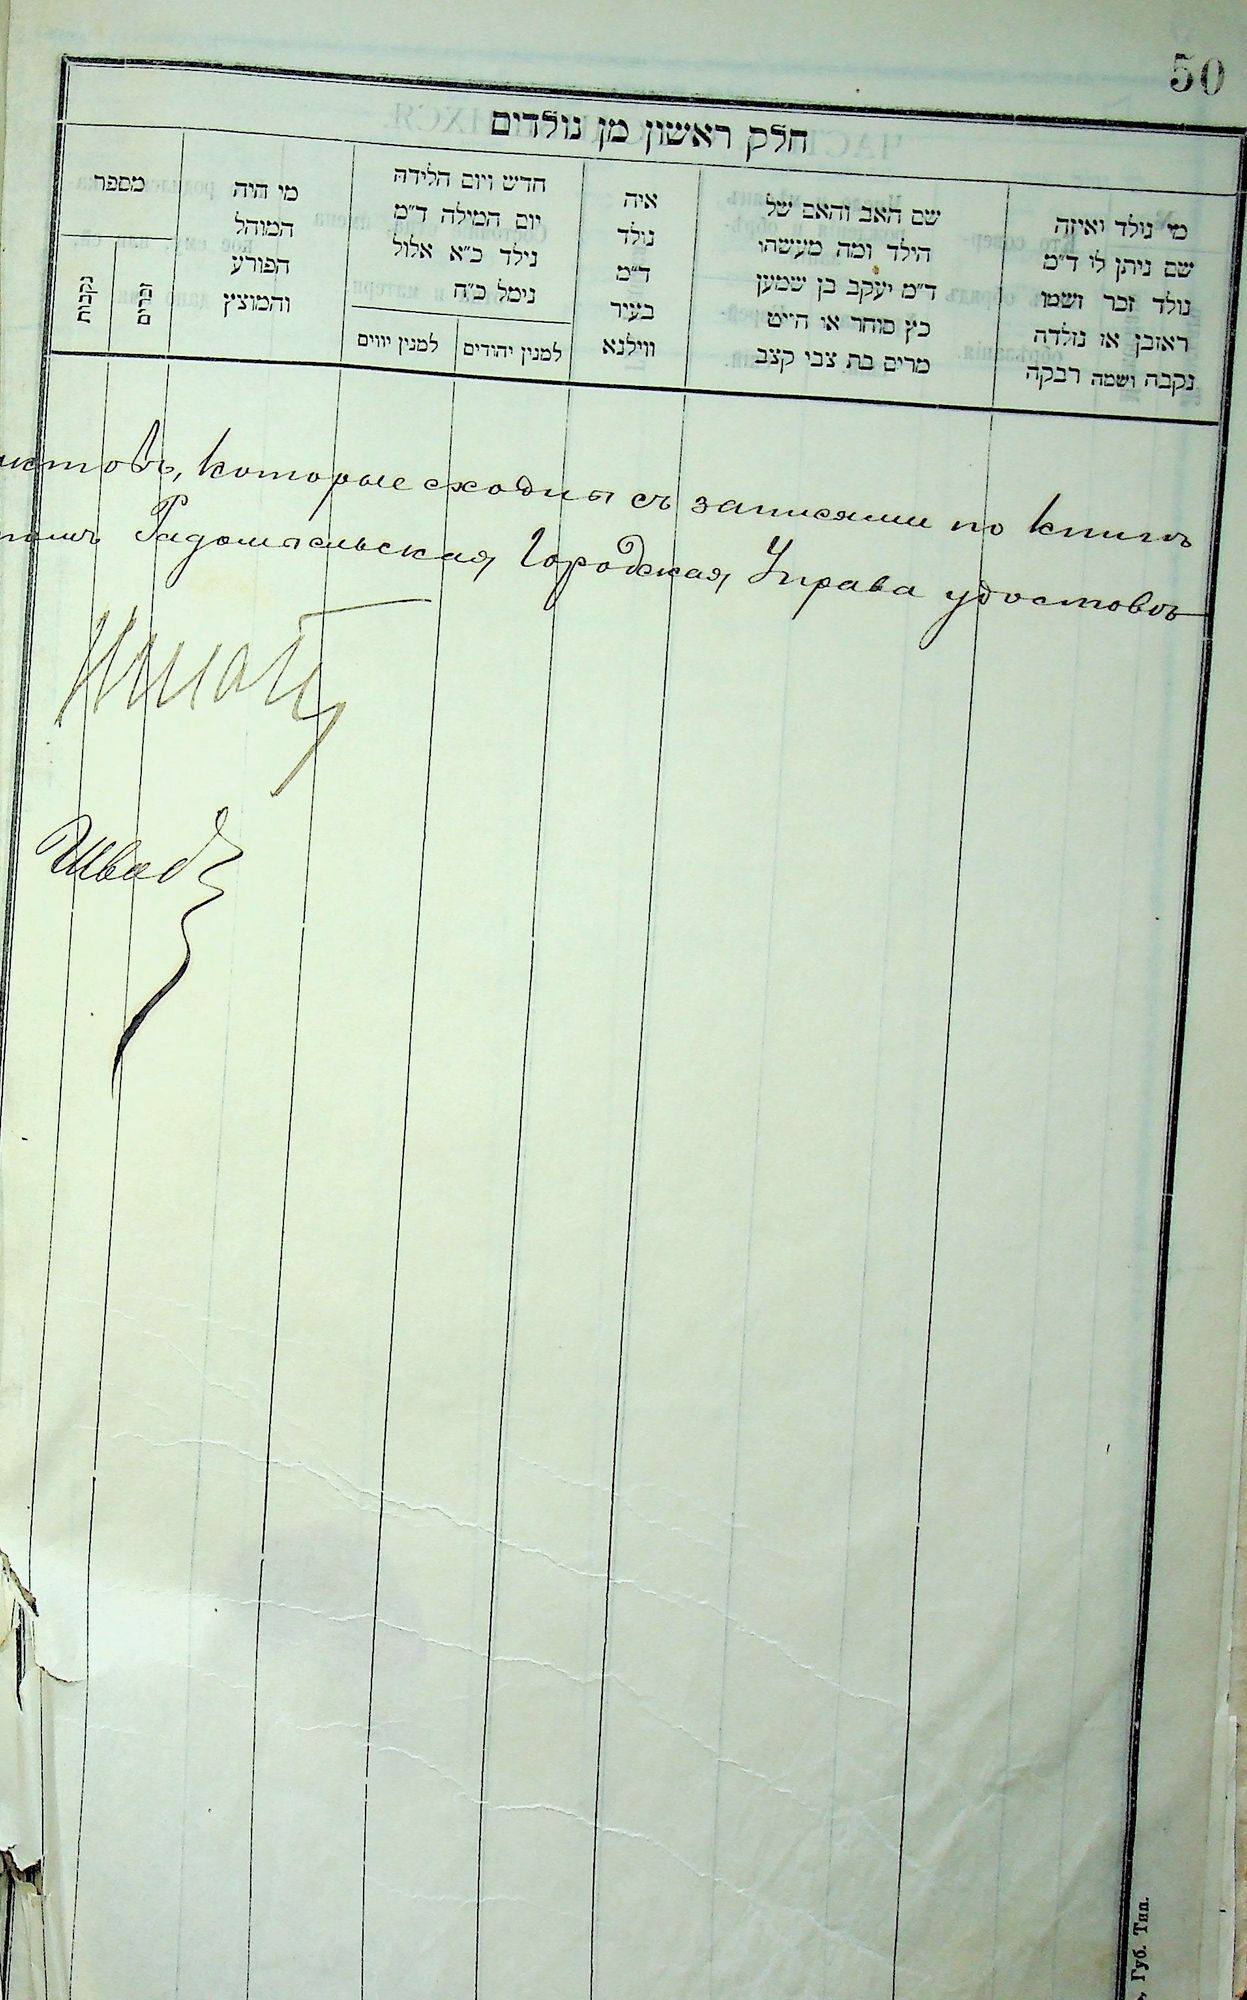 50
חלק ראשון מן נולדים
מי נולד ואיזה
שם ניתן לו ד״מ
נולד זכר ושמו
ראובן או נולדה
נקבה ושמה רבקה
שם האב והאם של
הילד ומה מעשהו
ד״מ יעקב בן שמעון
כץ סוחר או חייט
מרים בת צבי קצב
איה
נולד
ד״מ
בעיר
ווילנא
חדש ויום הלידה
יום המילה ד״מ
נילד כ״א אלול
נימל כ״ח
למנין יהודים
למנין יווים
מי היה
המוהל
הפורע
והמוצץ
מספר
זכרים
נקבות
которые сходны съ записями по книгѣ
Радомысльская Городская Управа удостовѣ
Губ. Тип.